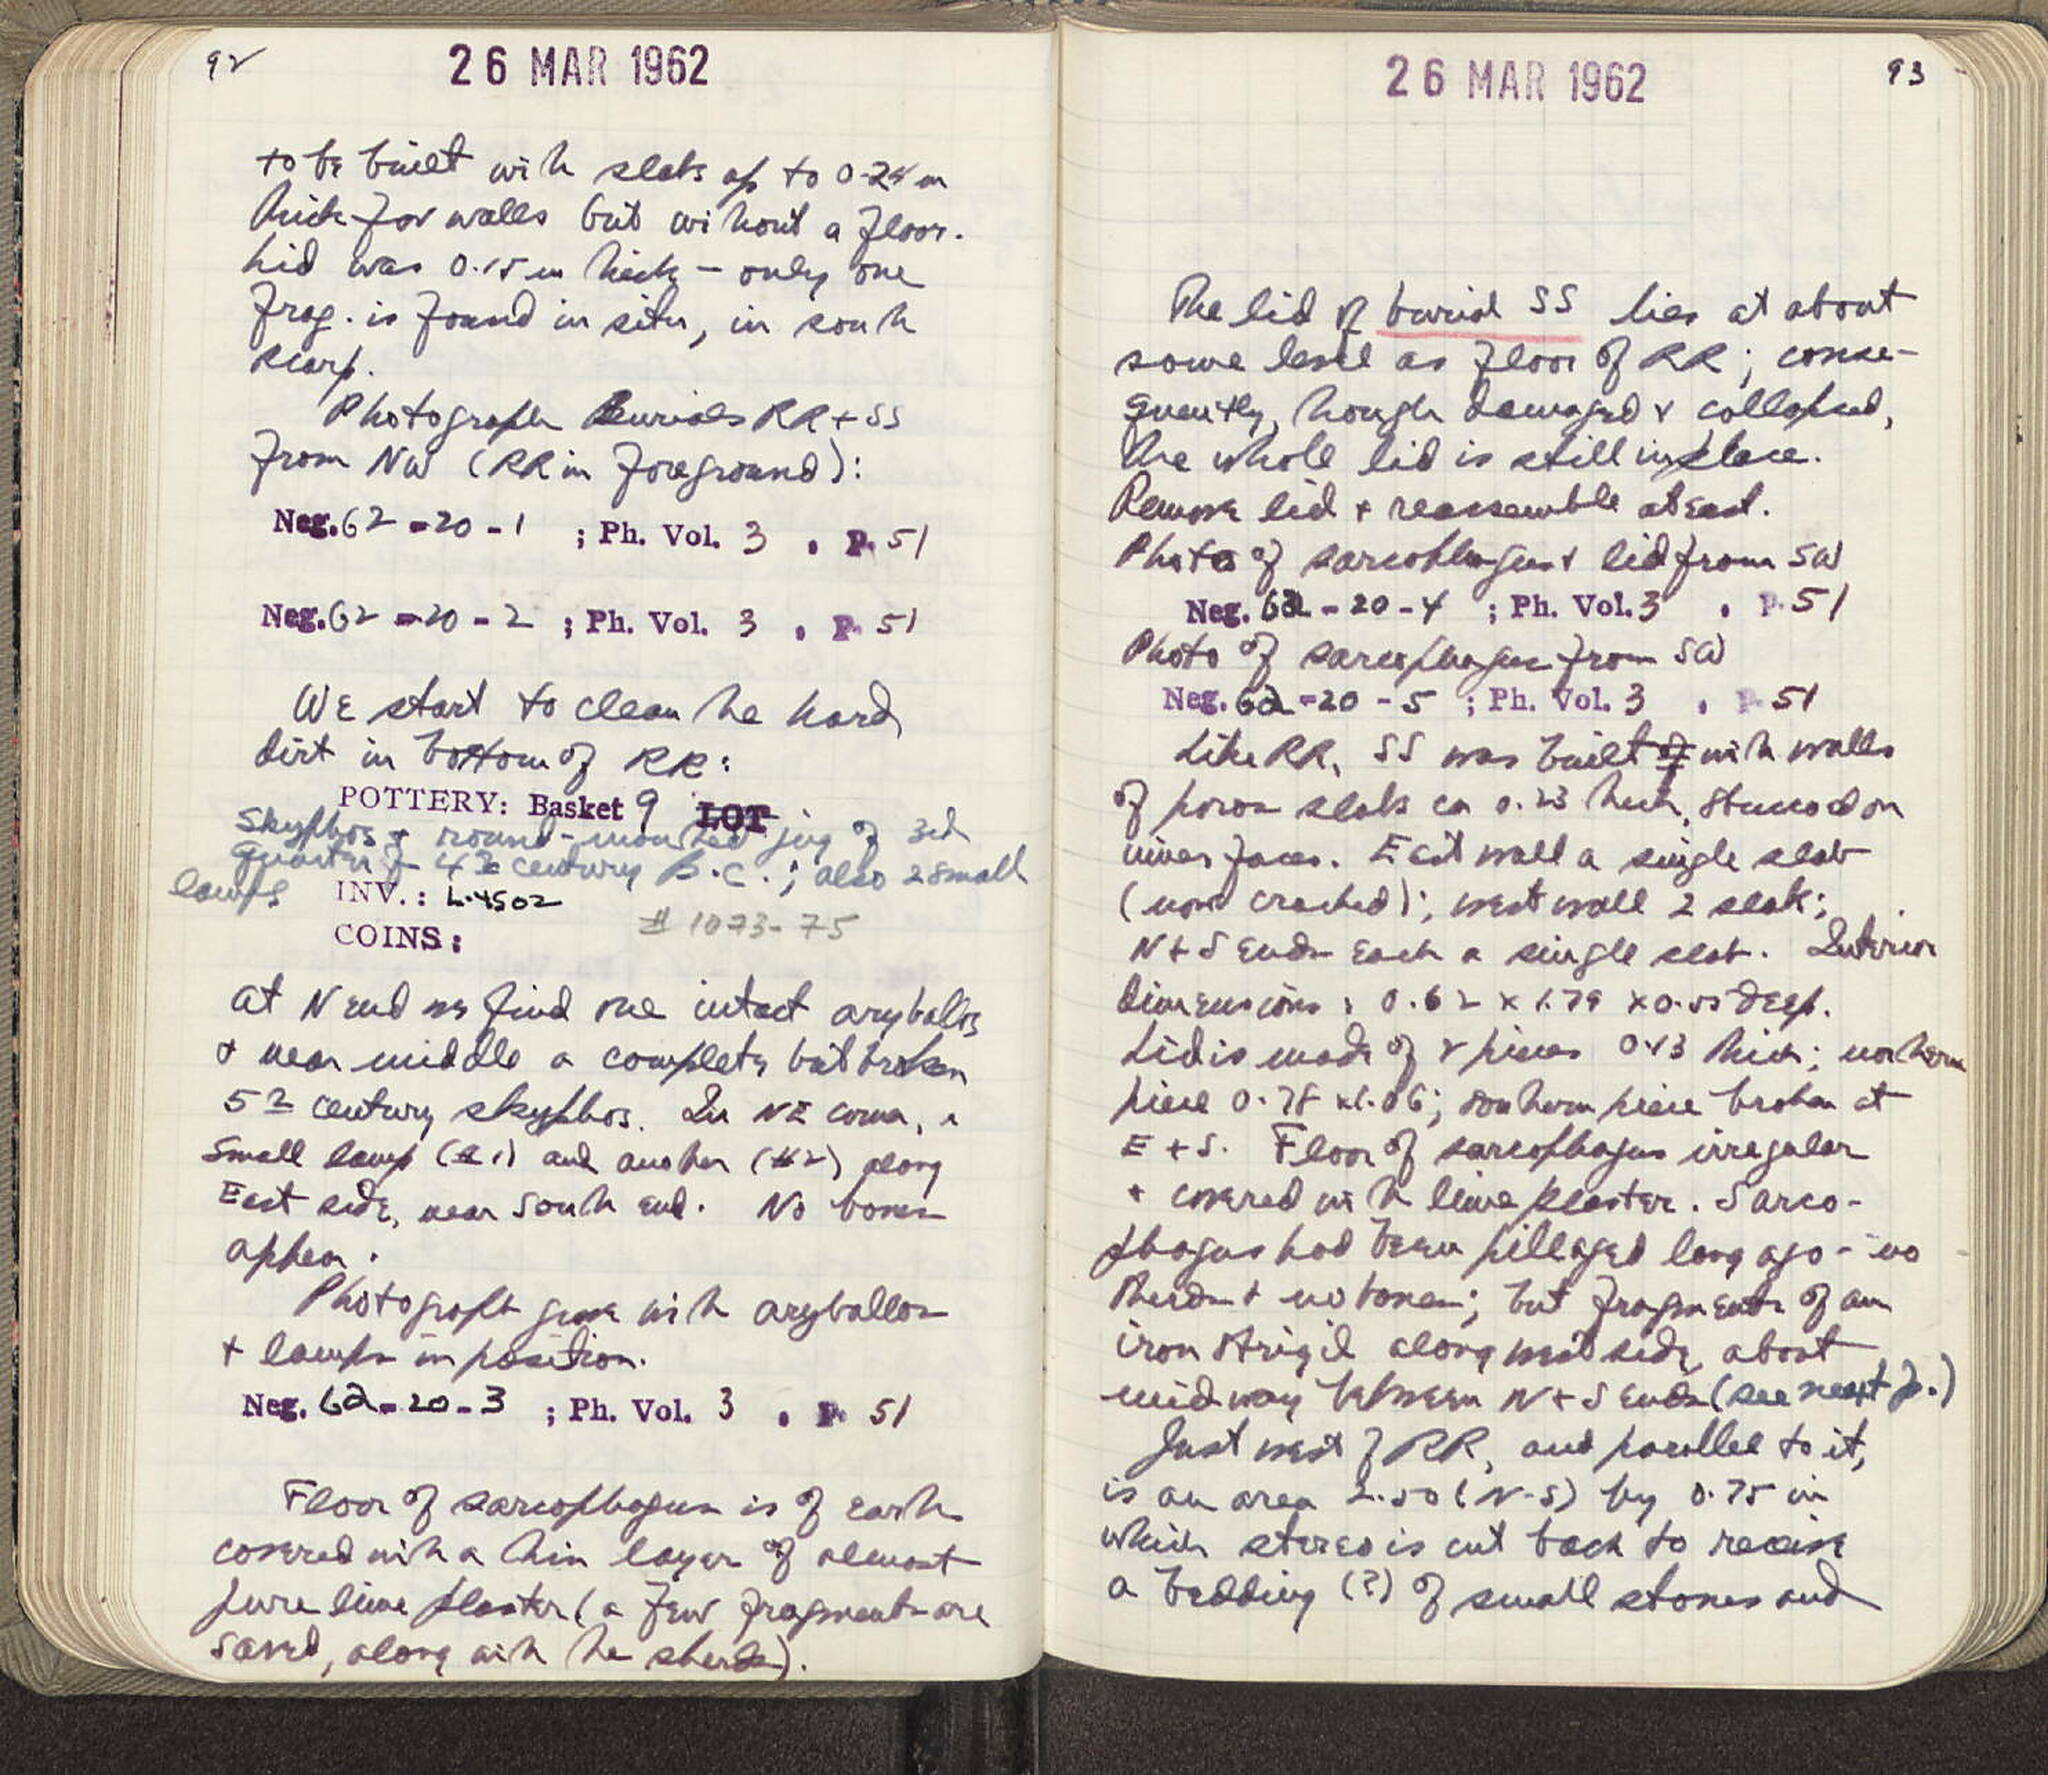 92
26 MAR 1962
to be built with slabs up to 0.24 m
thick for walls but without a floor.
Lid was 0.15 m thick – only one
frag. is found in situ, in south
scarp.
Photograph Burials RR + SS
from NW (RR in foreground):
Neg. 62-20-1 ; Ph. Vol. 3 . P. 51
Neg. 62-20-2 ; Ph. Vol. 3 . P. 51
We start to clean the hard
dirt in bottom of RR:
POTTERY: Basket 9 LOT
Skyphos & round-mouthed jug of 3rd
quarter of 4th century B.C.; also 2 small
lamps
INV.: L.4502
# 1073-75
COINS:
At N end we find one intact aryballos
+ near middle a complete but broken
5th century skyphos. In NE corner, a
small lamp (#1) and another (#2) along
East side, near South end. No bones
appear.
Photograph grave with aryballos
+ lamps in position.
Neg. 62-20-3 ; Ph. Vol. 3 . P. 51
Floor of sarcophagus is of earth
covered with a thin layer of almost
pure lime plaster (a few fragments are
saved, along with the sherds).
93
26 MAR 1962
The lid of burial SS lies at about
same level as floor of RR; conse-
quently, though damaged & collapsed,
the whole lid is still in place.
Remove lid + reassemble at East.
Photo of sarcophagus + lid from SW
Neg. 62-20-4 ; Ph. Vol. 3 . P. 51
Photo of sarcophagus from SW
Neg. 62-20-5 ; Ph. Vol. 3 . P. 51
Like RR, SS was built of with walls
of poros slabs ca 0.23 thick, stuccoed on
inner faces. East wall a single slab
(now cracked); west wall 2 slabs;
N + S ends each a single slab. Interior
dimensions: 0.62 x 1.79 x 0.55 deep.
Lid is made of 2 pieces 0.13 thick; northern
piece 0.78 x 1.06; southern piece broken at
E + S. Floor of sarcophagus irregular
+ covered with lime plaster. Sarco-
phagus had been pillaged long ago – no
sherds + no bones; but fragments of an
iron strigil along west side, about
midway between N + S ends (see next p.)
Just west of RR, and parallel to it,
is an area 2.50 (N-S) by 0.75 in
which stereo is cut back to receive
a bedding (?) of small stones and